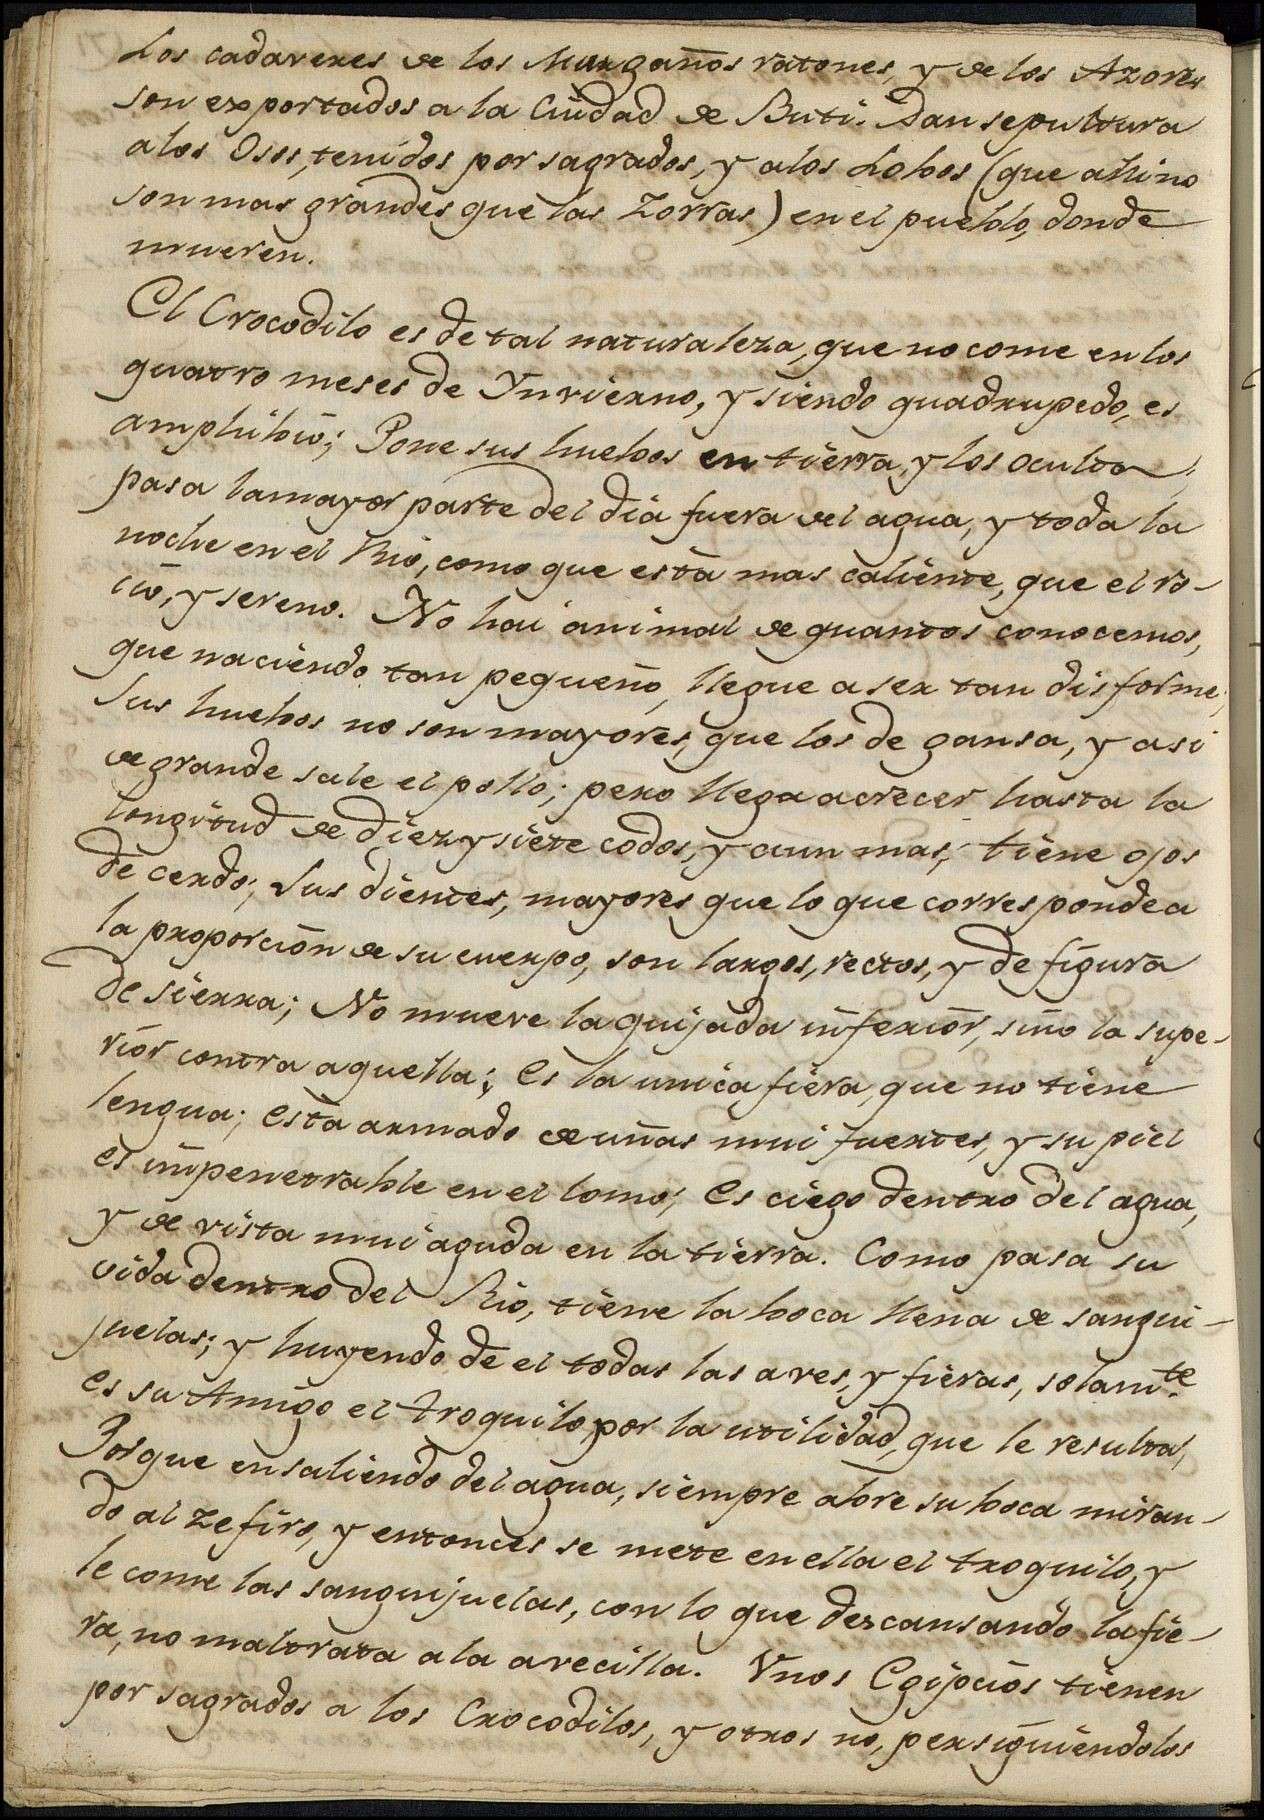 Los cadaveres de los Murgaños ratones, y de los Azores
son exportados a la Ciudad de Buti. Dan sepultura
a los Osos, tenidos por sagrados, y a los Lobos (que alli no
son mas grandes que las Zorras) en el pueblo, donde
mueren.
El Crocodilo es de tal naturaleza, que no come en los
quatro meses de Ynvierno, y siendo quadrupedo, es
amphibio; Pone sus huebos en tierra, y los oculta;
pasa la mayor parte del dia fuera del agua, y toda la
noche en el Rio, como que està mas caliente, que el ro-
cio, y sereno. No hai animal de quantos conocemos,
que naciendo tan pequeño, llegue a ser tan disforme;
Sus huebos no son mayores, que los de gansa, y asi
de grande sale el pollo; pero llega a crecer hasta la
longitud de diez y siete codos, y aun mas; tiene ojos
de cerdo; Sus dientes, mayores que lo que corresponde a
la proporcion de su cuerpo, son largos, rectos, y de figura
de sierra; No mueve la quijada inferior, sino la supe-
rior contra aquella; Es la unica fiera, que no tiene
lengua; està armado de uñas mui fuertes, y su piel
es impenetrable en el lomo; Es ciego dentro del agua,
y de vista mui aguda en la tierra. Como pasa su
vida dentro del Rio, tiene la boca llena de sangui-
juelas; y huyendo de el todas las aves, y fieras, solamte
es su Amigo el troquilo, por la utilidad, que le resulta;
Porque en saliendo del agua, siempre abre su boca miran-
do al zefiro, y entonces se mete en ella el troquilo, y
le come las sanguijuelas, con lo que descansando la fie-
ra, no maltrata a la avecilla. Vnos Egipcios tienen
por sagrados a los Crocodilos, y otros no, persiguiendolos